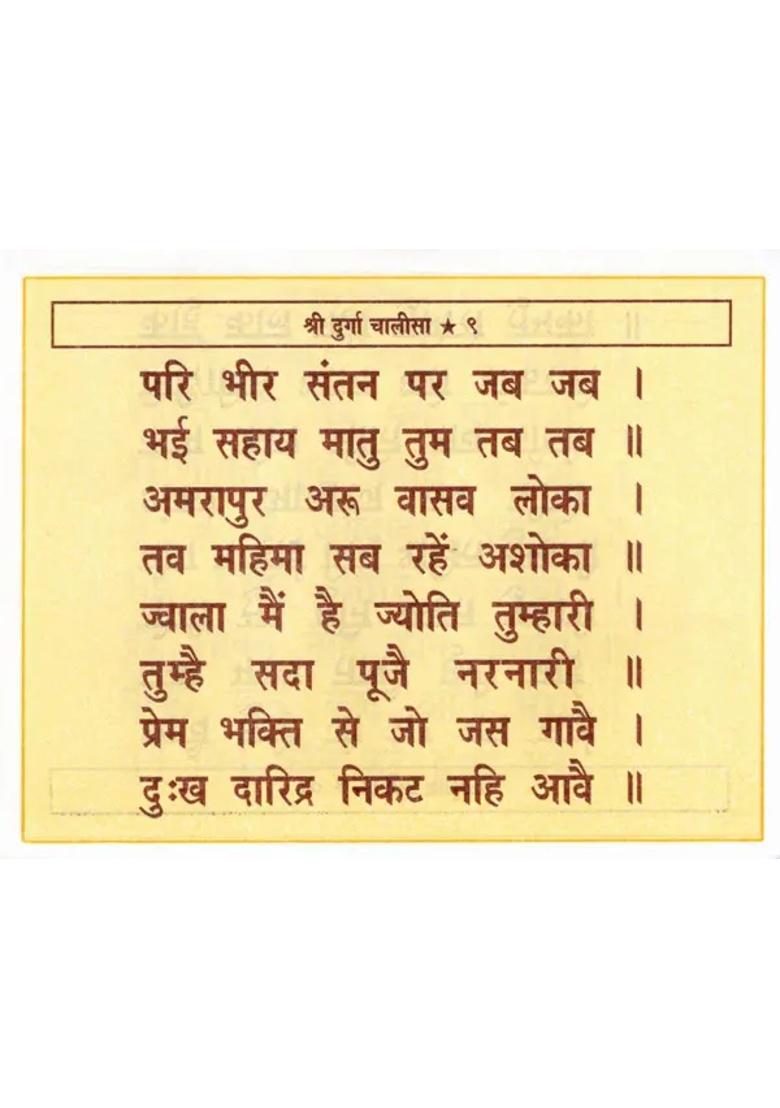 श्री दुर्गा चालीसा ★ ९
परि भीर संतन पर जब जब ।
भई सहाय मातु तुम तब तब ॥
अमरापुर अरू वासव लोका ।
तव महिमा सब रहें अशोका ॥
ज्वाला मैं है ज्योति तुम्हारी ।
तुम्है सदा पूजै नरनारी ॥
प्रेम भक्ति से जो जस गावै ।
दुःख दारिद्र निकट नहि आवै ॥